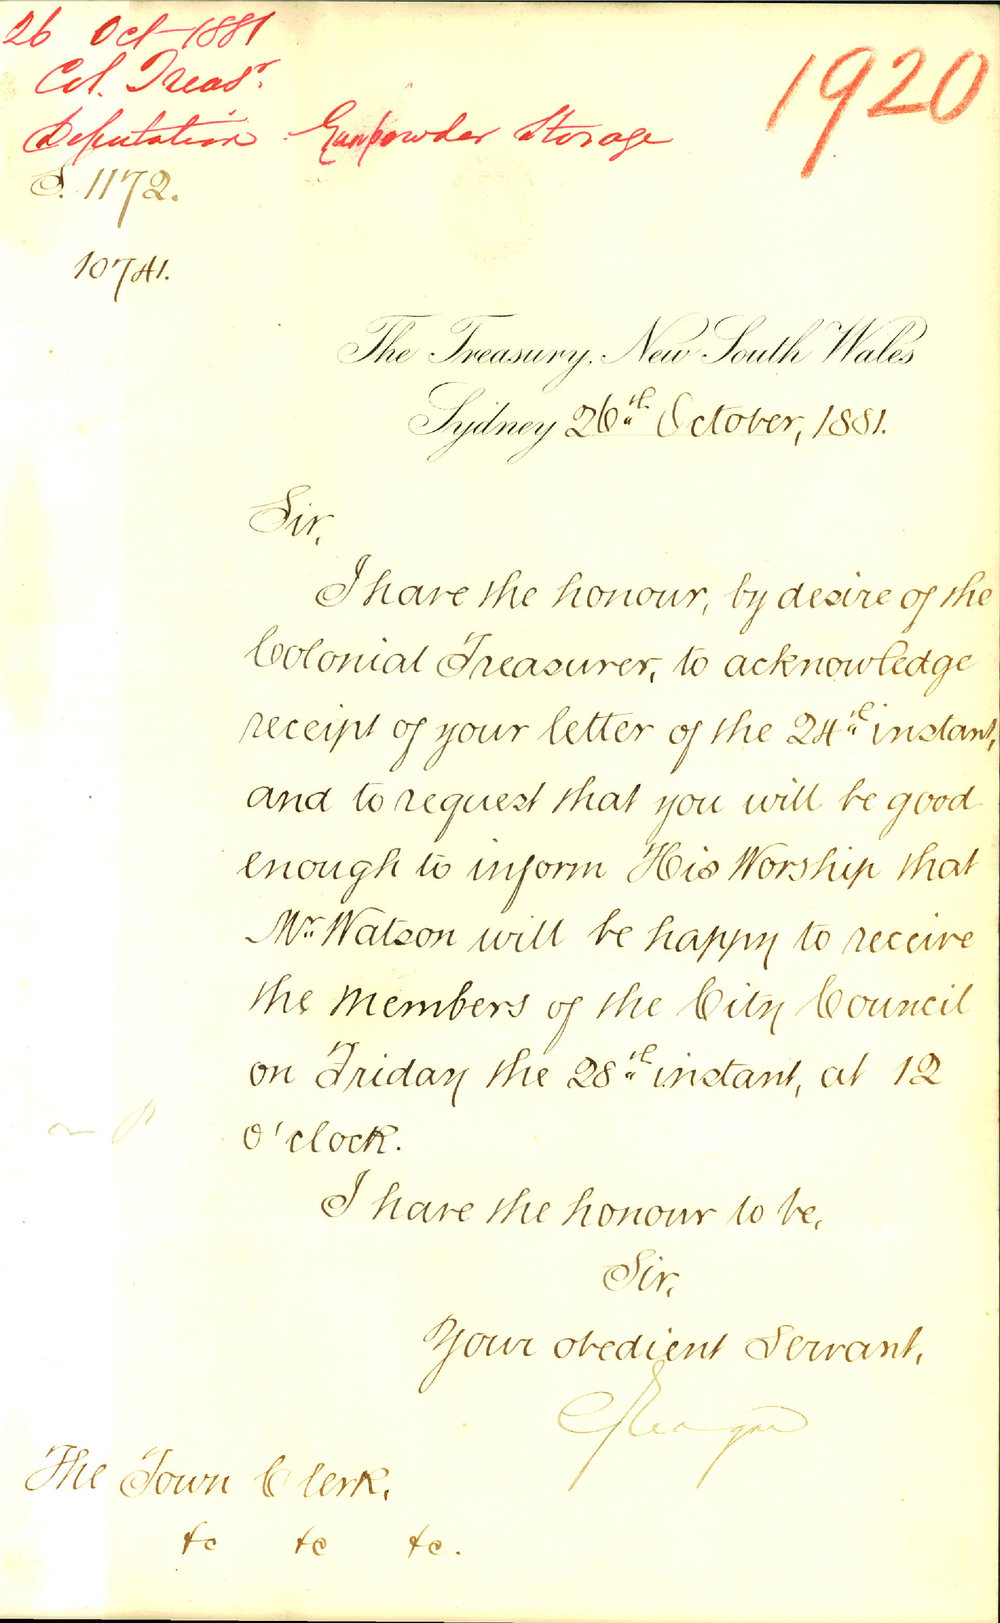 26 Oct 1881
1920
Col. Treasr.
Deputation Gunpowder Storage
S. 1172.
10741.
The Treasury, New South Wales
Sydney 26th October, 1881.
Sir,
I have the honour, by desire of the
Colonial Treasurer, to acknowledge
receipt of your letter of the 24th instant,
and to request that you will be good
enough to inform His Worship that
Mr. Watson will be happy to receive
the Members of the City Council
on Friday the 28th instant, at 12
o'clock.
I have the honour to be,
Sir,
Your obedient Servant,
The Town Clerk,
&c &c &c.